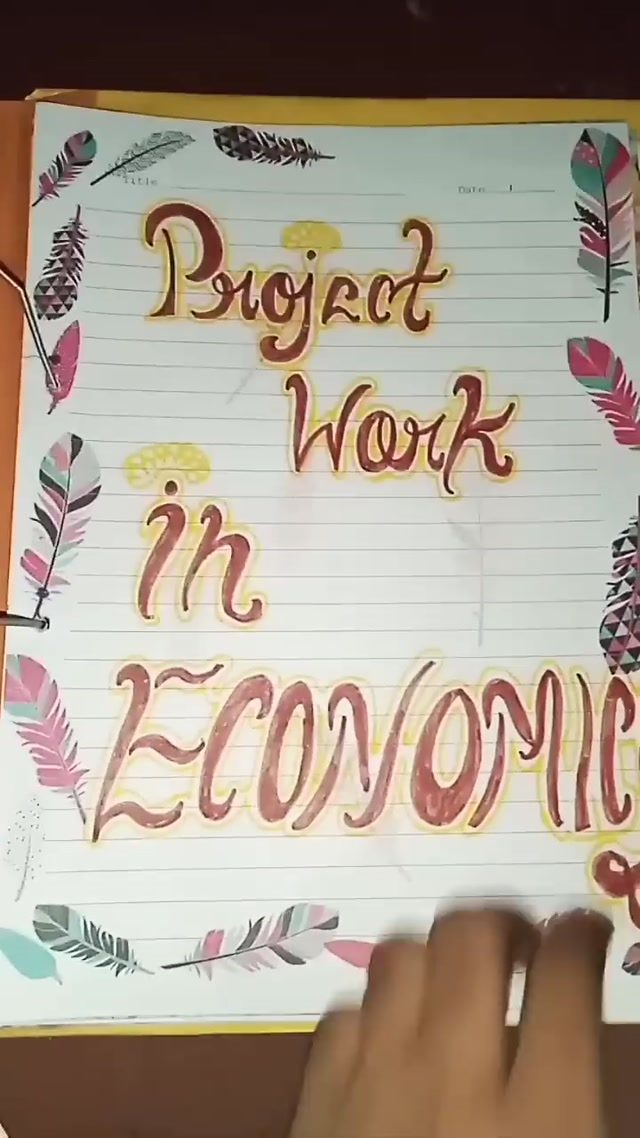 Title
Date
Project
Work
in
ECONOMIC